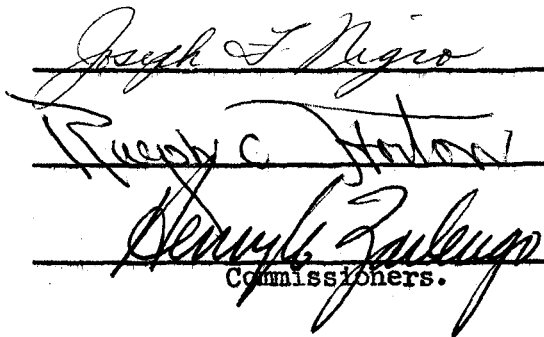 Joseph F. Nigro
Ralph C Horton
Henry E Zarlengo
Commissioners.